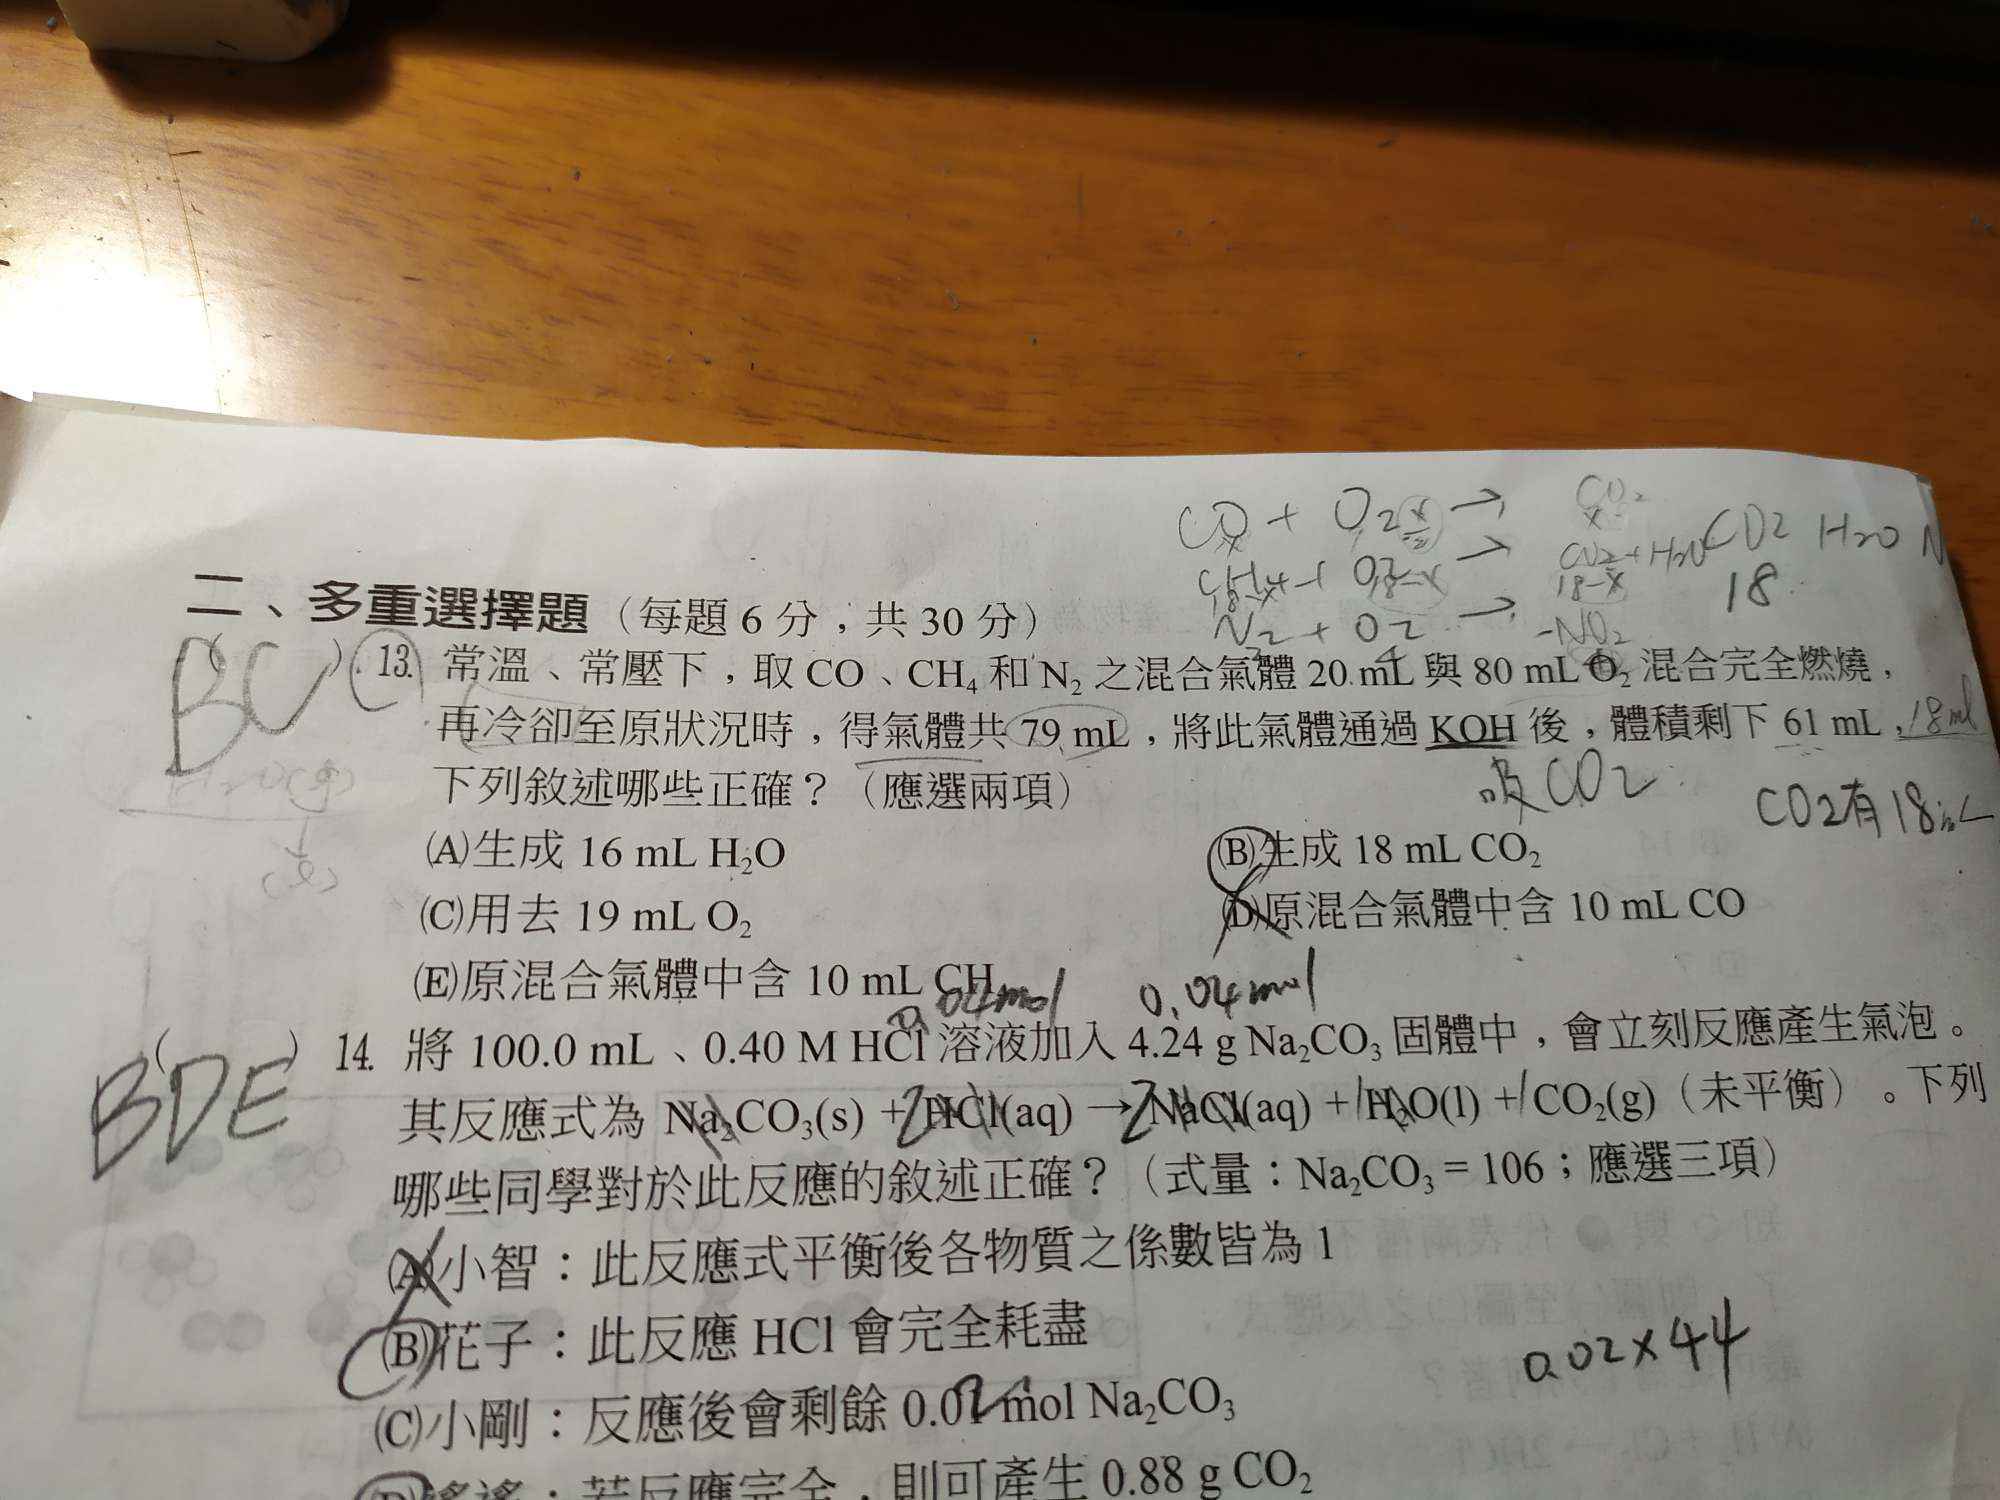 CO + O2 → CO2
CH4 + O2 → CO2 + H2O CO2 H2O N
18-x 18-x 18-x 18
N2 + O2 → NO2
二、多重選擇題（每題 6 分，共 30 分）
BC 13. 常溫、常壓下，取 CO、CH4 和 N2 之混合氣體 20 mL 與 80 mL O2 混合完全燃燒，
再冷卻至原狀況時，得氣體共 79 mL，將此氣體通過 KOH 後，體積剩下 61 mL， 18ml
下列敘述哪些正確？（應選兩項） 吸CO2
CO2有18mL
(A)生成 16 mL H2O (B)生成 18 mL CO2
(C)用去 19 mL O2 (D)原混合氣體中含 10 mL CO
(E)原混合氣體中含 10 mL CH
0.04mol 0.04mol
BDE 14. 將 100.0 mL、0.40 M HCl 溶液加入 4.24 g Na2CO3 固體中，會立刻反應產生氣泡。
其反應式為 Na2CO3(s) + 2HCl(aq) → 2NaCl(aq) + 1H2O(l) + 1CO2(g)（未平衡）。下列
哪些同學對於此反應的敘述正確？（式量：Na2CO3 = 106；應選三項）
(A)小智：此反應式平衡後各物質之係數皆為 1
(B)花子：此反應 HCl 會完全耗盡
0.02×44
(C)小剛：反應後會剩餘 0.01 mol Na2CO3
2
(D)遙遙：若反應完全，則可產生 0.88 g CO2